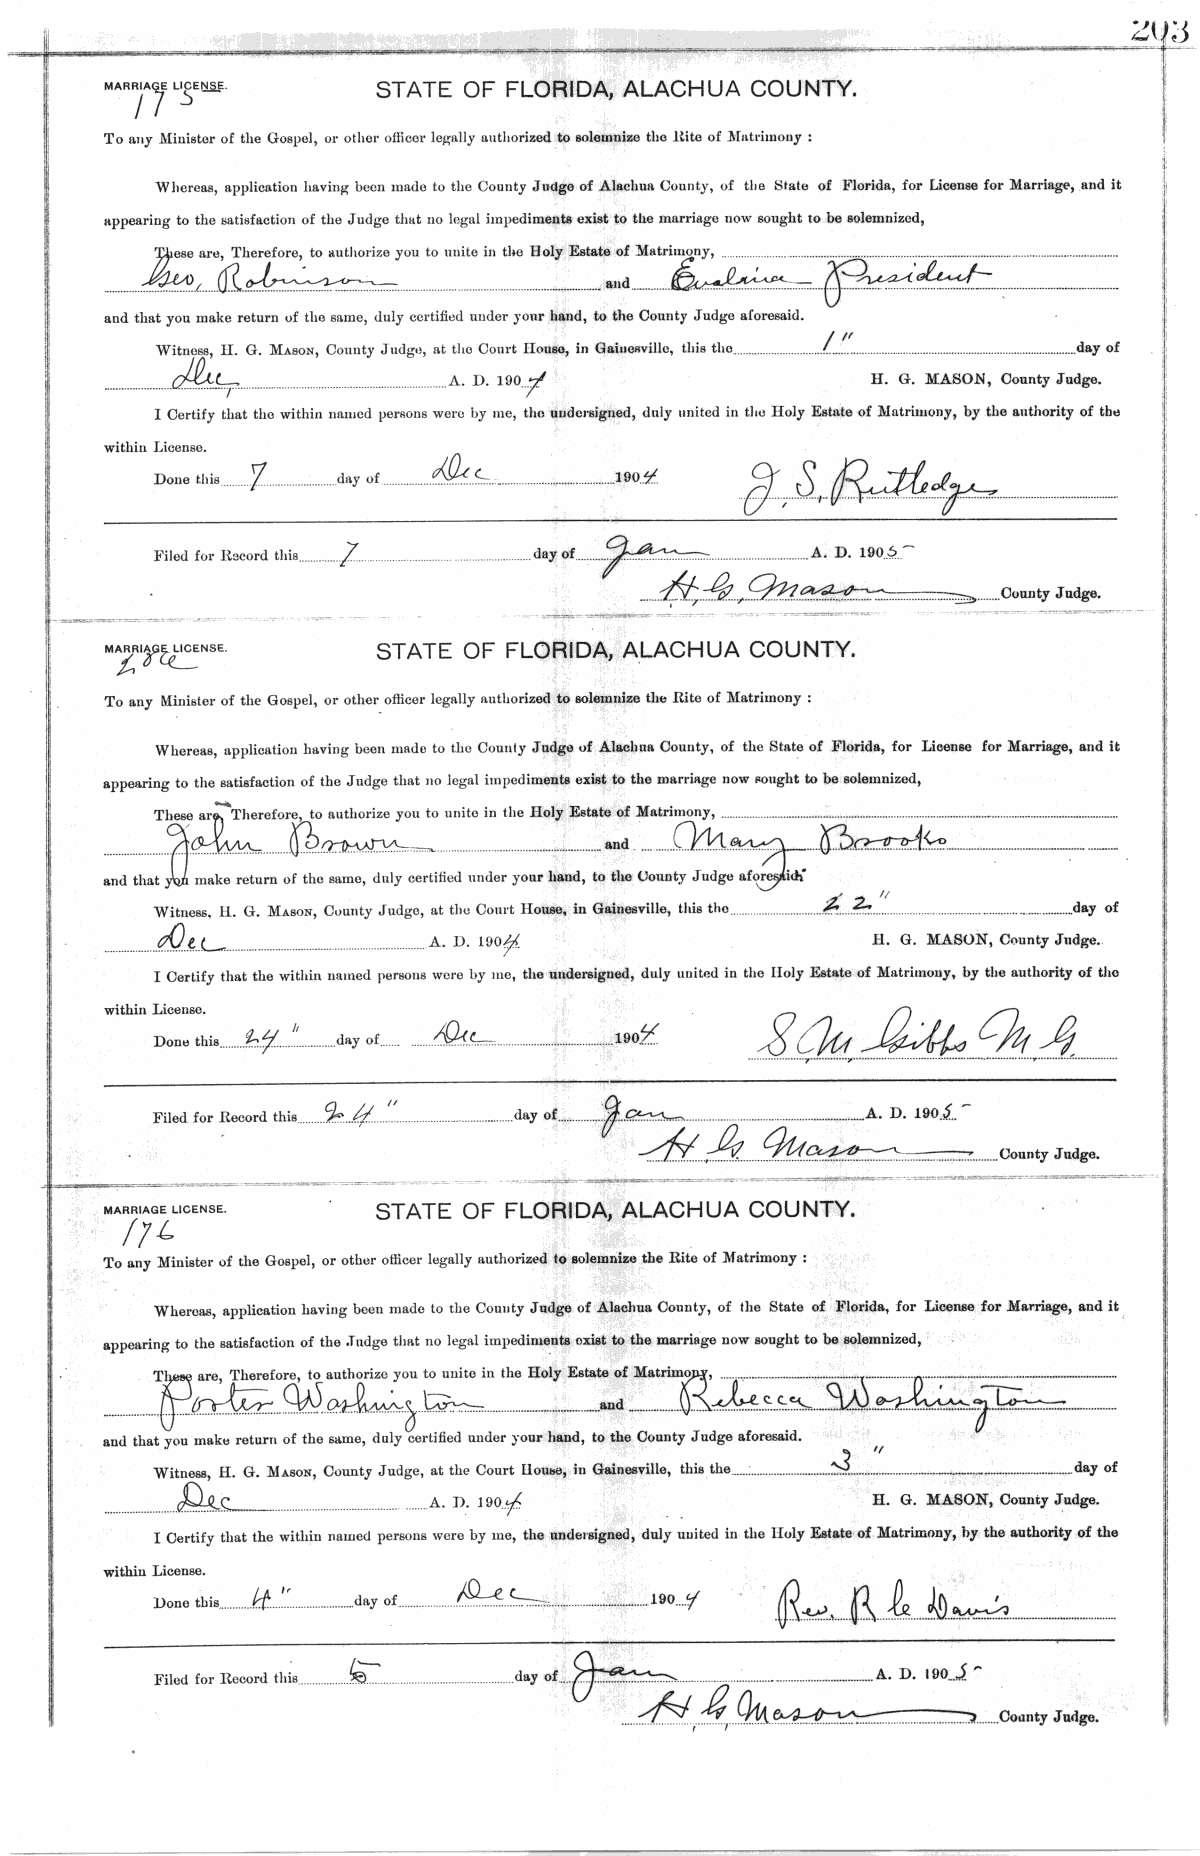 203
MARRIAGE LICENSE. STATE OF FLORIDA, ALACHUA COUNTY.
175
To any Minister of the Gospel, or other officer legally authorized to solemnize the Rite of Matrimony :
Whereas, application having been made to the County Judge of Alachua County, of the State of Florida, for License for Marriage, and it
appearing to the satisfaction of the Judge that no legal impediments exist to the marriage now sought to be solemnized,
These are, Therefore, to authorize you to unite in the Holy Estate of Matrimony,
Geo, Robinson and Evalina President
and that you make return of the same, duly certified under your hand, to the County Judge aforesaid.
Witness, H. G. MASON, County Judge, at the Court House, in Gainesville, this the 1" day of
Dec, A. D. 1904 H. G. MASON, County Judge.
I Certify that the within named persons were by me, the undersigned, duly united in the Holy Estate of Matrimony, by the authority of the
within License.
Done this 7 day of Dec 1904 J. S. Rutledge
Filed for Record this 7 day of Jan A. D. 1905
H. G. Mason County Judge.
MARRIAGE LICENSE. STATE OF FLORIDA, ALACHUA COUNTY.
To any Minister of the Gospel, or other officer legally authorized to solemnize the Rite of Matrimony :
Whereas, application having been made to the County Judge of Alachua County, of the State of Florida, for License for Marriage, and it
appearing to the satisfaction of the Judge that no legal impediments exist to the marriage now sought to be solemnized,
These are, Therefore, to authorize you to unite in the Holy Estate of Matrimony,
John Brown and Mary Brooks
and that you make return of the same, duly certified under your hand, to the County Judge aforesaid.
Witness, H. G. MASON, County Judge, at the Court House, in Gainesville, this the 22" day of
Dec A. D. 1904 H. G. MASON, County Judge.
I Certify that the within named persons were by me, the undersigned, duly united in the Holy Estate of Matrimony, by the authority of the
within License.
Done this 24" day of Dec 1904 S. M. Gibbs M. G.
Filed for Record this 24" day of Jan A. D. 1905
H. G. Mason County Judge.
MARRIAGE LICENSE. STATE OF FLORIDA, ALACHUA COUNTY.
176
To any Minister of the Gospel, or other officer legally authorized to solemnize the Rite of Matrimony :
Whereas, application having been made to the County Judge of Alachua County, of the State of Florida, for License for Marriage, and it
appearing to the satisfaction of the Judge that no legal impediments exist to the marriage now sought to be solemnized,
These are, Therefore, to authorize you to unite in the Holy Estate of Matrimony,
Porter Washington and Rebecca Washington
and that you make return of the same, duly certified under your hand, to the County Judge aforesaid.
Witness, H. G. MASON, County Judge, at the Court House, in Gainesville, this the 3" day of
Dec A. D. 1904 H. G. MASON, County Judge.
I Certify that the within named persons were by me, the undersigned, duly united in the Holy Estate of Matrimony, by the authority of the
within License.
Done this 4" day of Dec 1904 Rev. R Davis
Filed for Record this 5 day of Jan A. D. 1905
H. G. Mason County Judge.